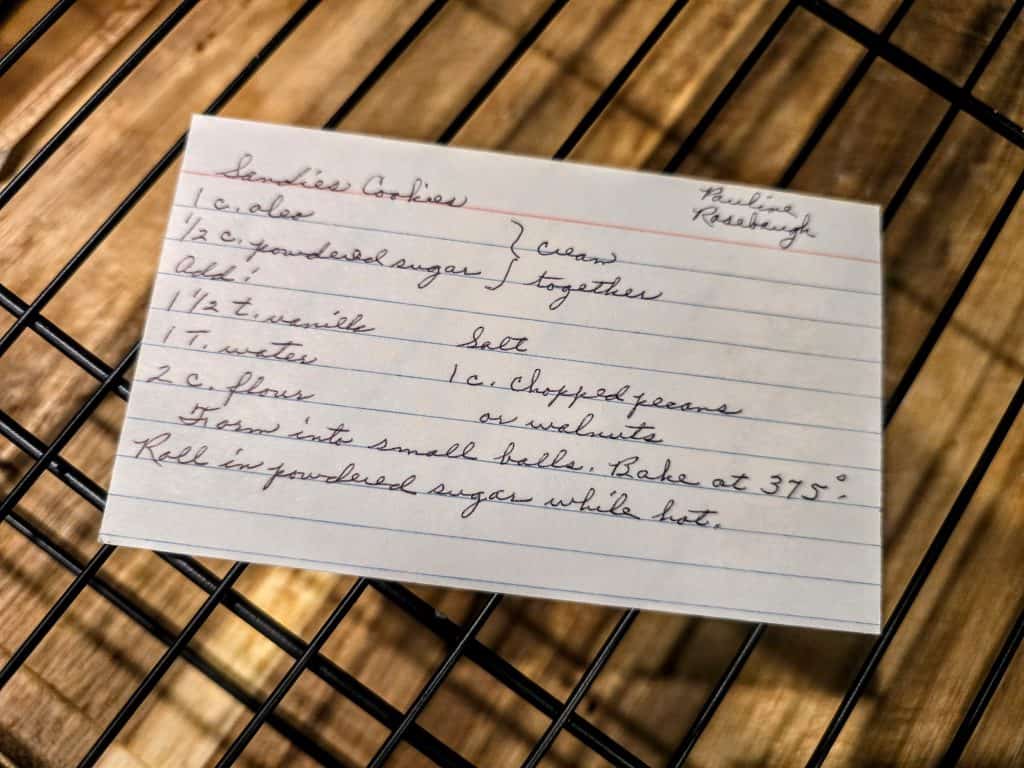 Sandies Cookies
Pauline
Rosebaugh
1 c. oleo
1/2 c. powdered sugar
} cream
together
Add:
1 1/2 t. vanilla
Salt
1 T. water
1 c. chopped pecans
2 c. flour
or walnuts
Form into small balls. Bake at 375°.
Roll in powdered sugar while hot.